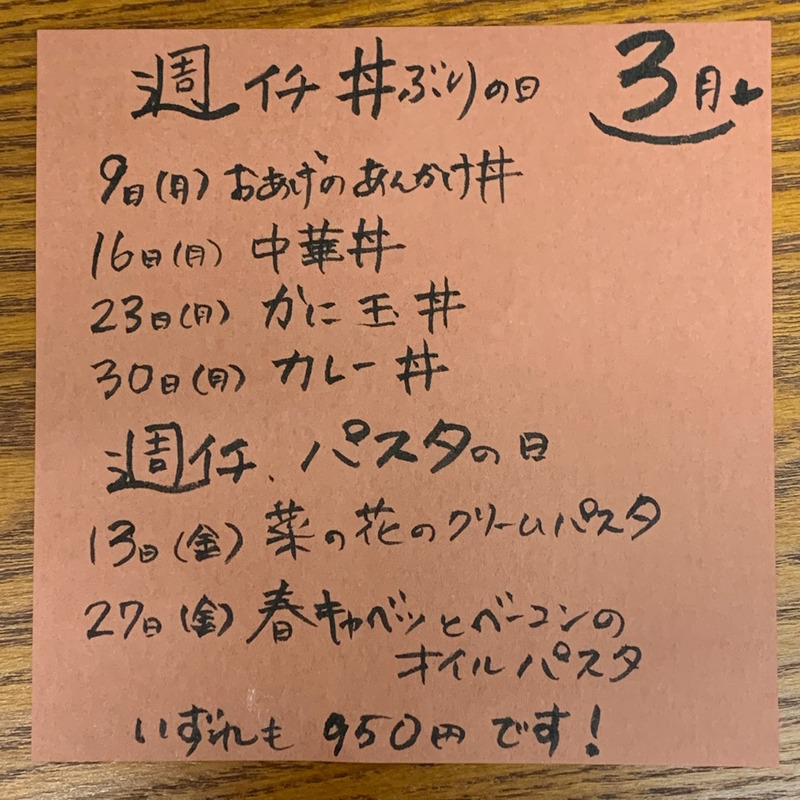 週イチ 丼ぶりの日 3月
9日(月) おあげのあんかけ丼
16日(月) 中華丼
23日(月) かに玉丼
30日(月) カレー丼
週イチ、パスタの日
13日(金) 菜の花のクリームパスタ
27日(金) 春キャベツとベーコンの
オイルパスタ
いずれも 950円です!